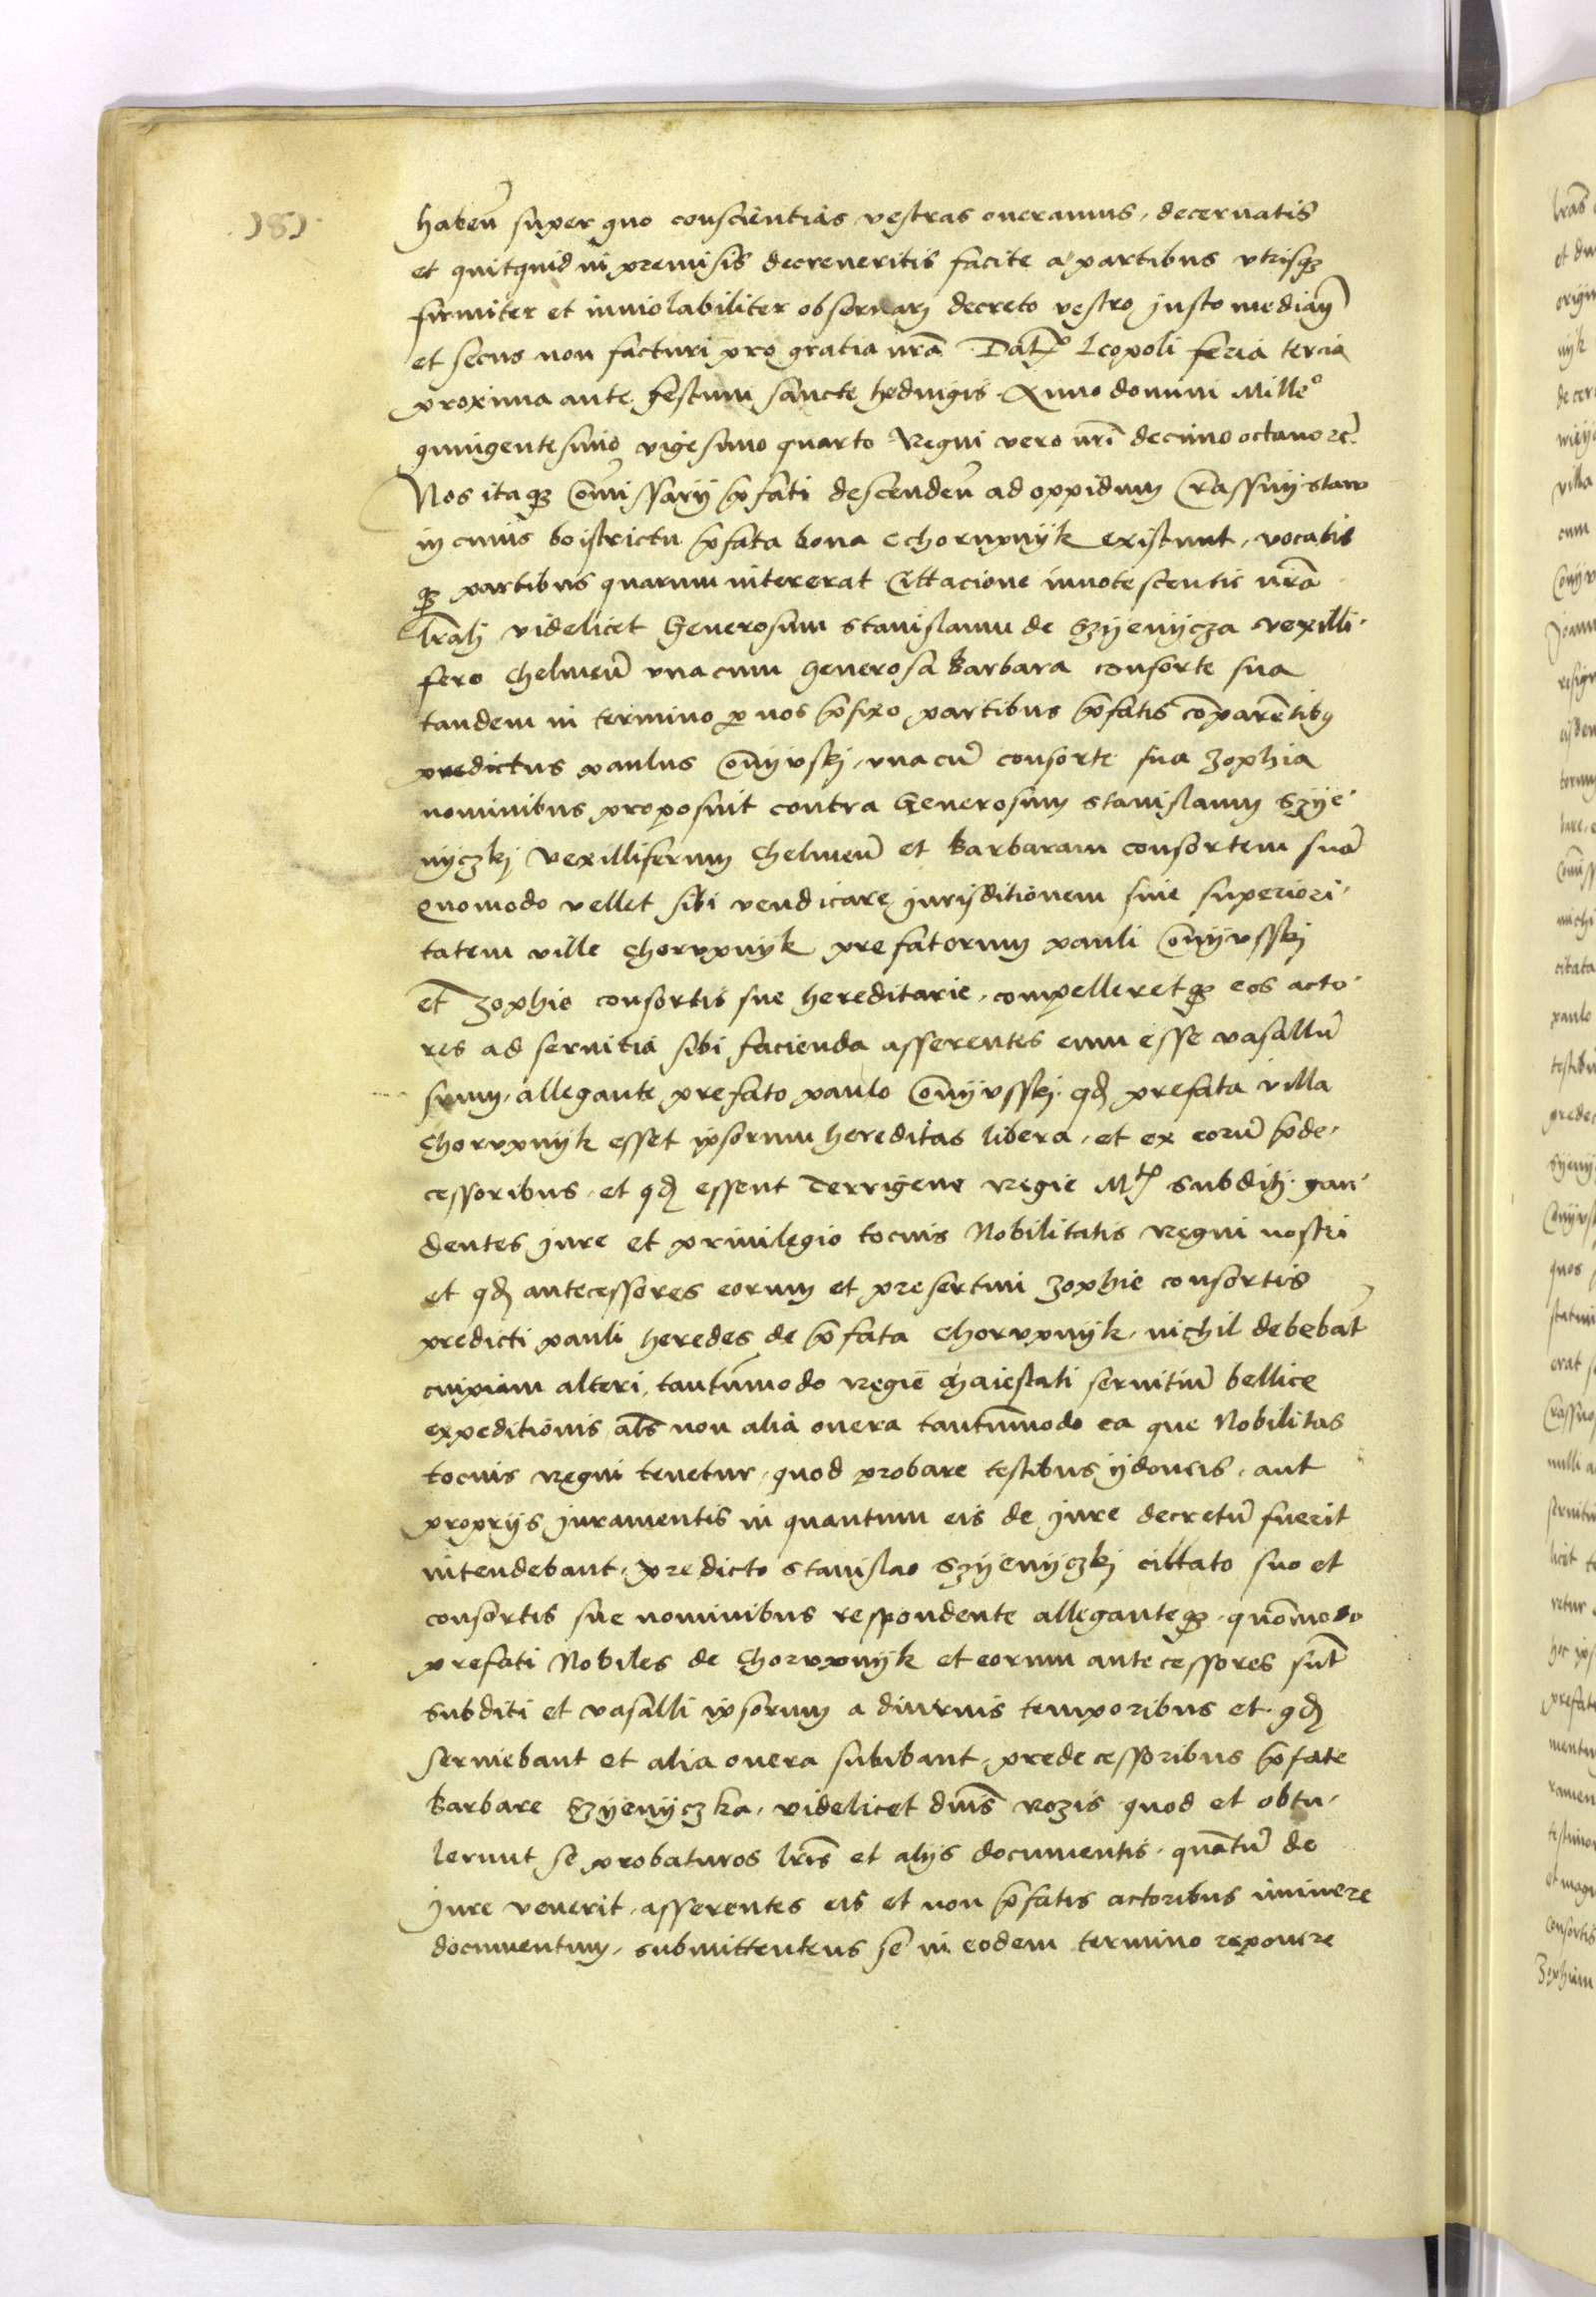 habeñ super quo conscientias vestras oneramus, decernatis
et quitquid in premisis decreueritis facite a partibus vtrisqꝫ
firmiter et inuiolabiliter obseruarj decreto vestro justo mediañ
et secus non facturi pro gratia nrã. Datꝭ Leopoli feria tercia
proxima ante festum sancte hedwigis. Anno domini Milleº
quingentesimo vigesimo quarto Regni vero nrĩ decimo octauo zc̃.
Nos itaqꝫ Com̃issarij p̃fati descendeñ ad oppidum Crassnijstaw
in cuius districtu p̃fata bona Chorupnijk existunt, vocatis
qꝫ partibus quarum intererat Cittacione innotescentis nrã
lrãlj videlicet Generosum stanislaum de Szijenijcza vexilli-
fero Chelmeñ vna cum Generosa Barbara consorte sua
tandem in termino ꝑ nos p̃fixo partibus p̃fatis cõparẽtibꝰ
predictus paulus Conijvskj, vna cũ consorte sua Zophia
nominibus proposuit contra Generosum stanislaum Szije-
nijczkj vexilliferum Chelmeñ et Barbaram consortem suã
Quomodo vellet sibi vendicare jurisditionem siue superiori-
tatem ville Chorupnijk prefatorum pauli Conijvsskj
et Zophie consortis sue hereditarie, compelleretqꝫ eos acto-
res ad seruitia sibi facienda asserentes eum esse vasallũ
suum, allegante prefato paulo Conijvsskj. qđ prefata villa
Chorupnijk esset ipsorum hereditas libera, et ex eorũ p̃de-
cessoribus, et qđ essent Terrigene Regie Mtꝭ subditj gau-
dentes jure et priuilegio tocius Nobilitatis Regni nostri
et qđ antecessores eorum et presertim Zophie consortis
predicti pauli heredes de p̃fata Chorupnijk, nichil debebãt
cuipiam alteri, tantũmodo Regiẽ Maiestati seruitiũ bellice
expeditionis als̃ non alia onera tantũmodo ea que Nobilitas
tocius regni tenetur, quod probare testibus ijdoneis, aut
proprijs juramentis in quantum eis de jure decretũ fuerit
intendebant, predicto stanislao Szijenijczkj cittato suo et
consortis sue nominibus respondente alleganteqꝫ. quõmodo
prefati Nobiles de Chorupnijk et eorum antecessores sũt
subditi et vasalli ipsorum a diuturnis temporibus et qđ
seruiebant et alia onera subibant, predecessoribus p̃fate
Barbare Szijenijczka, videlicet dnĩs rozis quod et obtu-
lerunt se probaturos lrĩs et alijs documentis, quãtũ de
jure venerit, asserentes eis et non p̃fatis actoribus iminere
documentum, submittentens se in eodem termino reponere